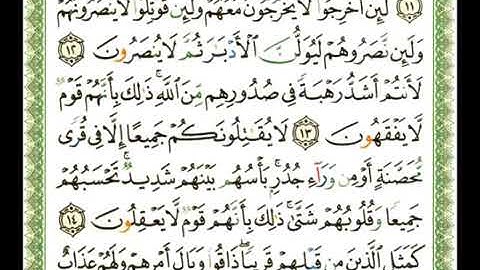 ١١ لَئِنْ أُخْرِجُوا۟ لَا يَخْرُجُونَ مَعَهُمْ وَلَئِن قُوتِلُوا۟ لَا يَنصُرُونَهُمْ
وَلَئِن نَّصَرُوهُمْ لَيُوَلُّنَّ ٱلْأَدْبَـٰرَ ثُمَّ لَا يُنصَرُونَ ١٢
لَأَنتُمْ أَشَدُّ رَهْبَةً فِى صُدُورِهِم مِّنَ ٱللَّهِ ۚ ذَٰلِكَ بِأَنَّهُمْ قَوْمٌ
لَّا يَفْقَهُونَ ١٣ لَا يُقَـٰتِلُونَكُمْ جَمِيعًا إِلَّا فِى قُرًى
مُّحَصَّنَةٍ أَوْ مِن وَرَآءِ جُدُرٍۭ ۚ بَأْسُهُم بَيْنَهُمْ شَدِيدٌ ۚ تَحْسَبُهُمْ
جَمِيعًا وَقُلُوبُهُمْ شَتَّىٰ ۚ ذَٰلِكَ بِأَنَّهُمْ قَوْمٌ لَّا يَعْقِلُونَ ١٤
كَمَثَلِ ٱلَّذِينَ مِن قَبْلِهِمْ قَرِيبًا ۖ ذَاقُوا۟ وَبَالَ أَمْرِهِمْ وَلَهُمْ عَذَابٌ